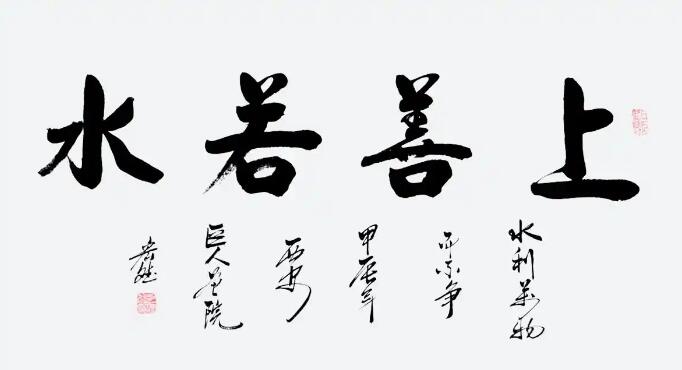 上善若水
水利萬物
而不争
甲辰年
西安
巨人院